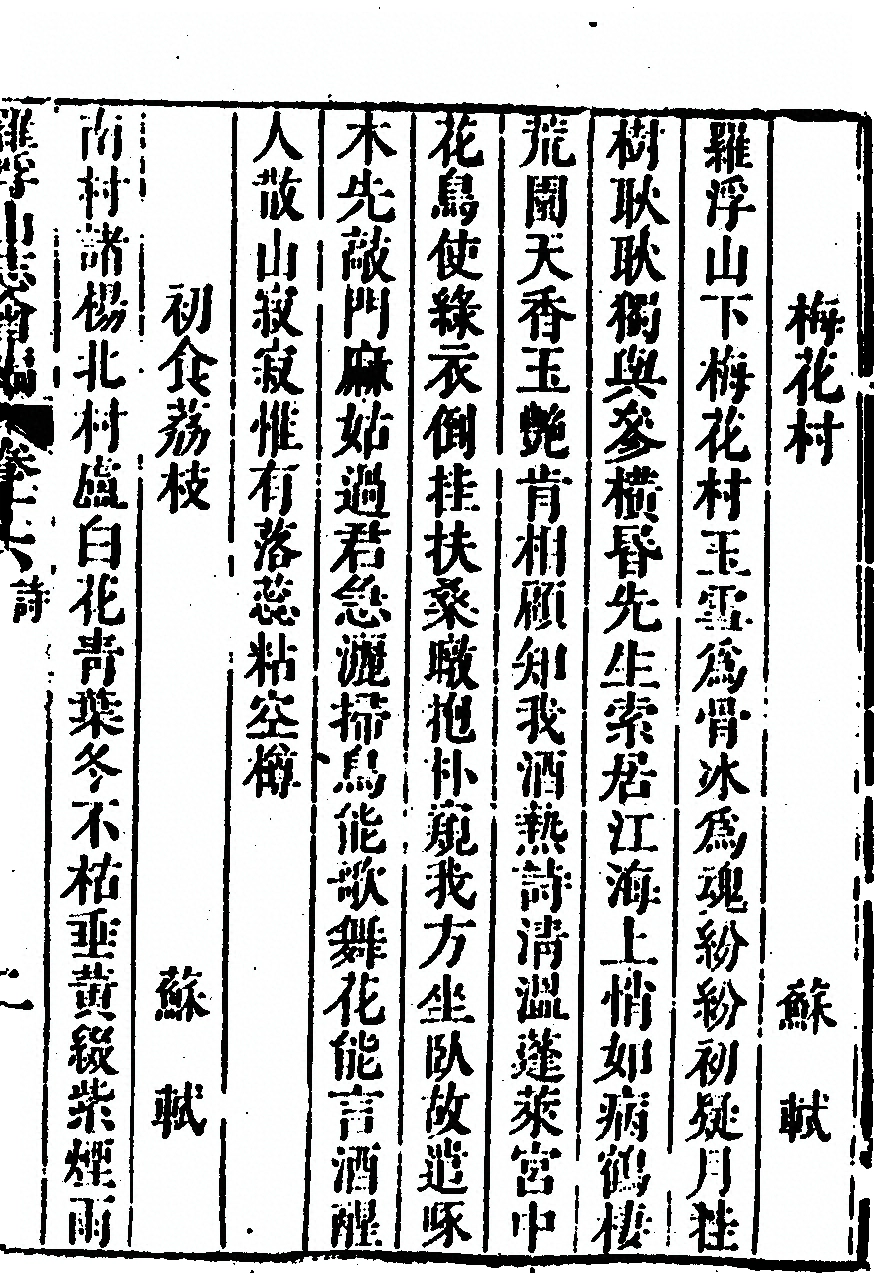 梅花村　蘇軾
羅浮山下梅花村玉雪爲骨冰爲魂紛紛初疑月桂
樹耿耿獨與參橫昬先生索居江海上悄如病鶴棲
荒園天香玉艷肯相顧知我酒熱詩淸溫蓬萊宮中
花鳥使綠衣倒挂扶桑暾抱朴窺我方坐臥故遣啄
木先敲門麻姑過君急灑掃鳥能歌舞花能言酒醒
人散山寂寂惟有落蕊粘空樽
初食荔枝　蘇軾
南村諸楊北村盧白花靑葉冬不枯垂黃綴紫煙雨
羅浮山志會編　卷十六　詩　二